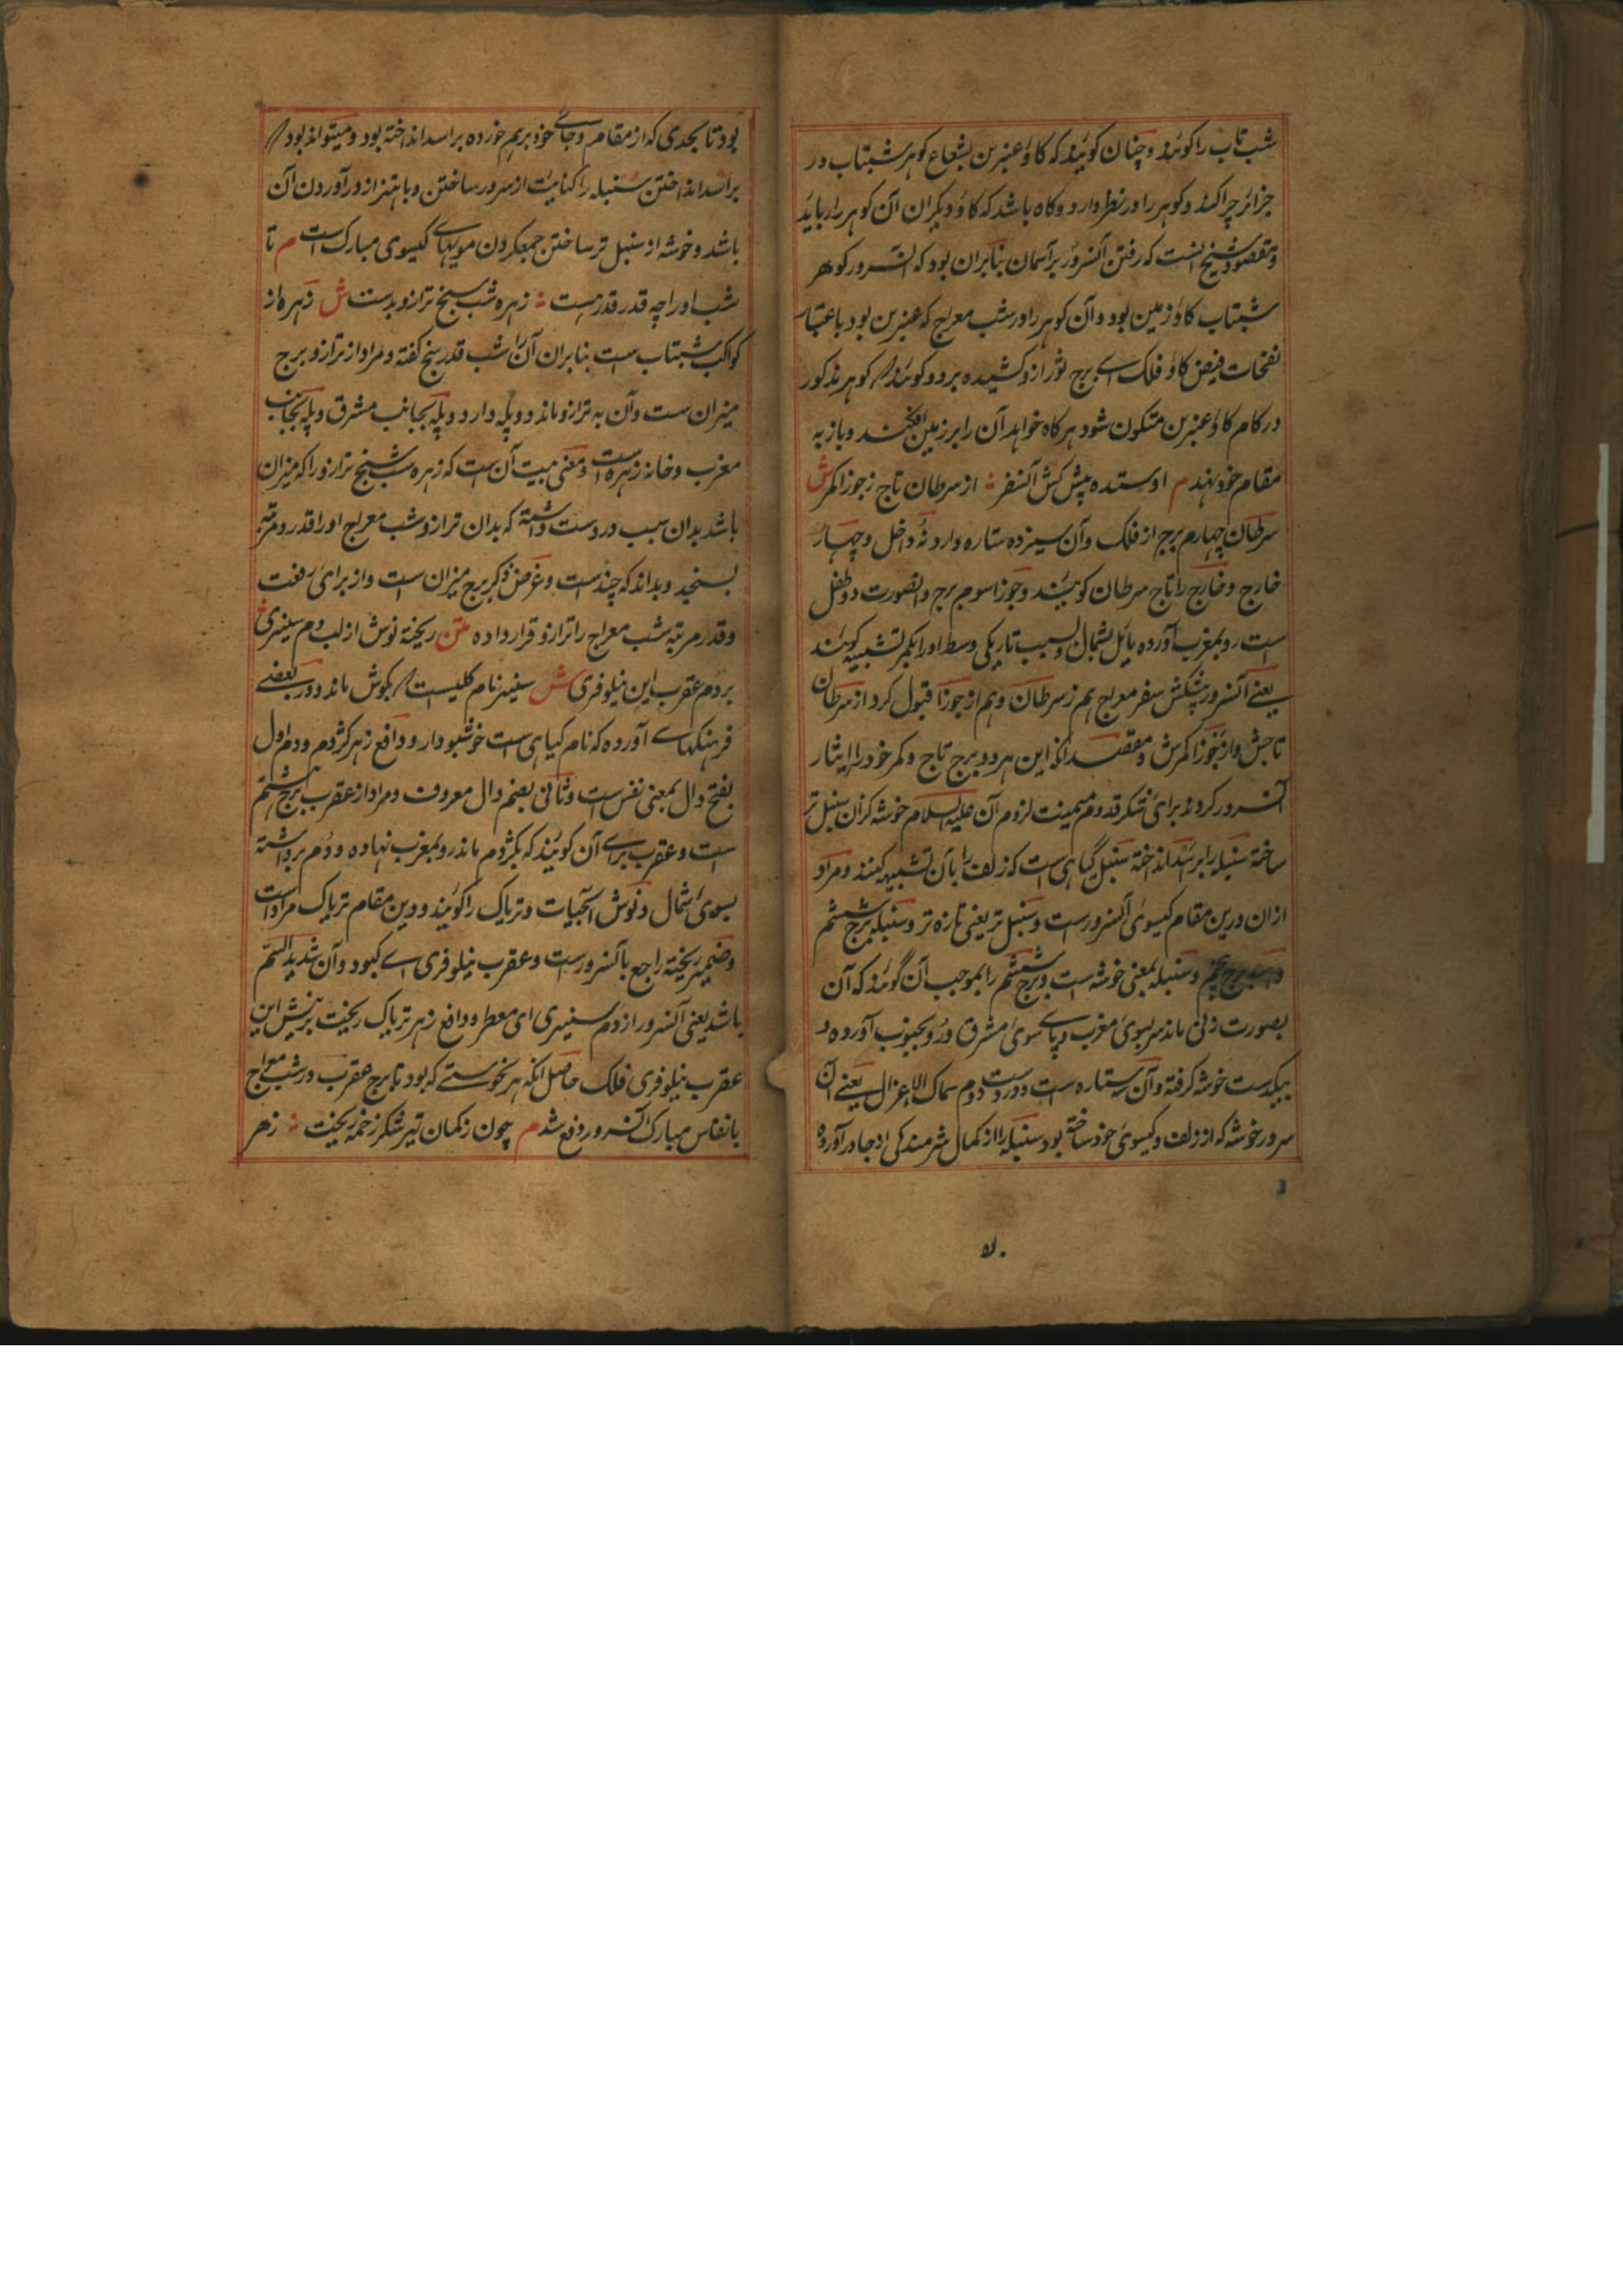 شب تاب را گویند و چنان گویند که گاو عنبرین بشعاع گوهر شبتاب در
جزائر چرا کند و گوهر را در نظر دارد و گاه باشد که گاو دیگران آن گوهر را رباید
و مقصود شیخ انست که رفتن آنسرور بر آسمان بنا بران بود که آنسرور گوهر
شبتاب گاو زمین بود و آن گوهر را در شب معراج که عنبرین بود باعتبار
نفخات فیض گاو فلک اے برج ثور ازو کشیده برد و گویند گوهر مذکور
در کام گاو عنبرین متکون شود هرگاه خواهد آن را بر زمین افکند و باز به
مقام خود نهد م او ستده پیش کش آنسفر ؞ از سرطان تاج ز جوزا کمر ش
سرطان چهارم برج از فلک و آن سیزده ستاره دارد نه داخل و چهار
خارج و خارج را تاج سرطان گویند و جوزا سوم برج و بصورت دو طفل
است رو بمغرب آورده مائل بشمال و بسبب تاریکی وسط او را بکمر تشبیه کنند
یعنے آنسرور پیشکش سفر معراج هم ز سرطان و هم از جوزا قبول کرد از سرطان
تاجش و از جوزا کمرش و مقصد آنکه این هر دو برج تاج و کمر خود را ایثار
آنسرور کردند برای شکر قدوم میمنت لزوم آن علیه السلام خوشه کزان سنبل تر
ساخته سنبله را بر اسد انداخته سنبل گیاهی است که زلف را بآن تشبیه کنند و مراد
ازان درین مقام گیسوی آنسرورست و سنبل تر یعنی تازه تر و سنبله برج ششم
و سنبله بمعنی خوشه است و برج ششم را بموجب آن گویند که آن
بصورت زنی ماند سر بسوی مغرب و پاے سوی مشرق و رو بجنوب آورده و
بیکدست خوشه گرفته و آن سه ستاره است و در دست دوم سماک الاعزال یعنے آن
سرور خوشه که از زلف و گیسوی خود ساخته بود سنبله را از کمال شرمندگی از جا در آورده
۵۰
بود تا بحدی که از مقام و جاے خود برهم خورده بر اسد انداخته بود و میتواند بود
بر اسد انداختن سنبله را کنایت از مسرور ساختن و باهتزاز در آوردن آن
باشد و خوشه از سنبل تر ساختن جمع کردن مویهاے گیسوی مبارک است م تا
شب او را چه قدر قدر هست ؞ زهره شب سنج ترازو بدست ش زهره از
کواکب شبتاب است بنا بران آن را شب قدر سنج گفته و مراد از ترازو برج
میزان ست و آن به ترازو ماند دو پله دارد و پله بجانب مشرق و پله بجانب
مغرب و خانه زهره است و معنی بیت آن ست که زهره شب سنج ترازو را که میزان
باشد بدان سبب در دست داشته که بدان ترازو شب معراج او را قدر و مرتبه
بسنجد و بداند که چندست و غرض ذکر برج میزان ست و از برای رفعت
و قدر مرتبه شب معراج را ترازو قرار داده متن ریخته نوش از لب دم سیسنبری
بر دم عقرب این نیلوفری ش سیسنبر نام گلیست بگوش ماند و در بعضے
فرهنگهاے آورده که نام گیاهی است خوشبودار و دافع زهر کژدم و دم اول
بفتح دال بمعنی نفس ست و ثانی بضم دال معروف و مراد از عقرب برج هشتم
ست و عقرب براے آن گویند که بکژدم ماند رو بمغرب نهاده و دم برداشته
بسوی شمال و نوش آبحیات و تریاک را گویند و درین مقام تریاک مراد است
و ضمیر ریخته راجع بآنسرورست و عقرب نیلوفری اے کبود و آن شدید السم
باشد یعنی آنسرور از دم سیسنبری ای معطر و دافع زهر تریاک ریخت بر نیش این
عقرب نیلوفری فلک حاصل آنکه هر نحوستے که بود تا برج عقرب در شب معراج
بانفاس مبارک آنسرور دفع شد م چون ز کمان تیر شکر زخمه ریخت ؞ زهر